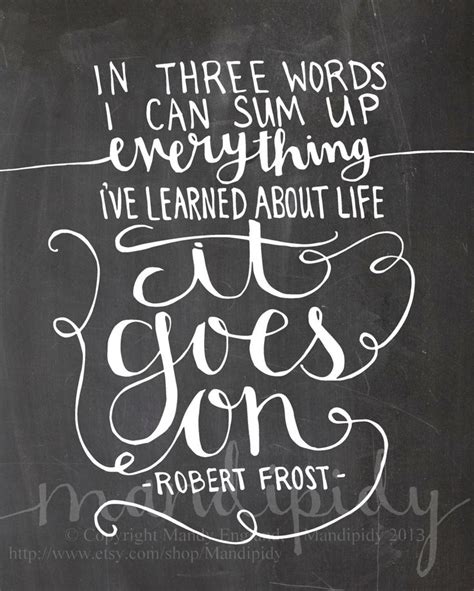 IN THREE WORDS
I CAN SUM UP
everything
I'VE LEARNED ABOUT LIFE
it
goes
on
-ROBERT FROST-
mandipidy
© Copyright Mandy England Mandipidy 2013
http://www.etsy.com/shop/Mandipidy